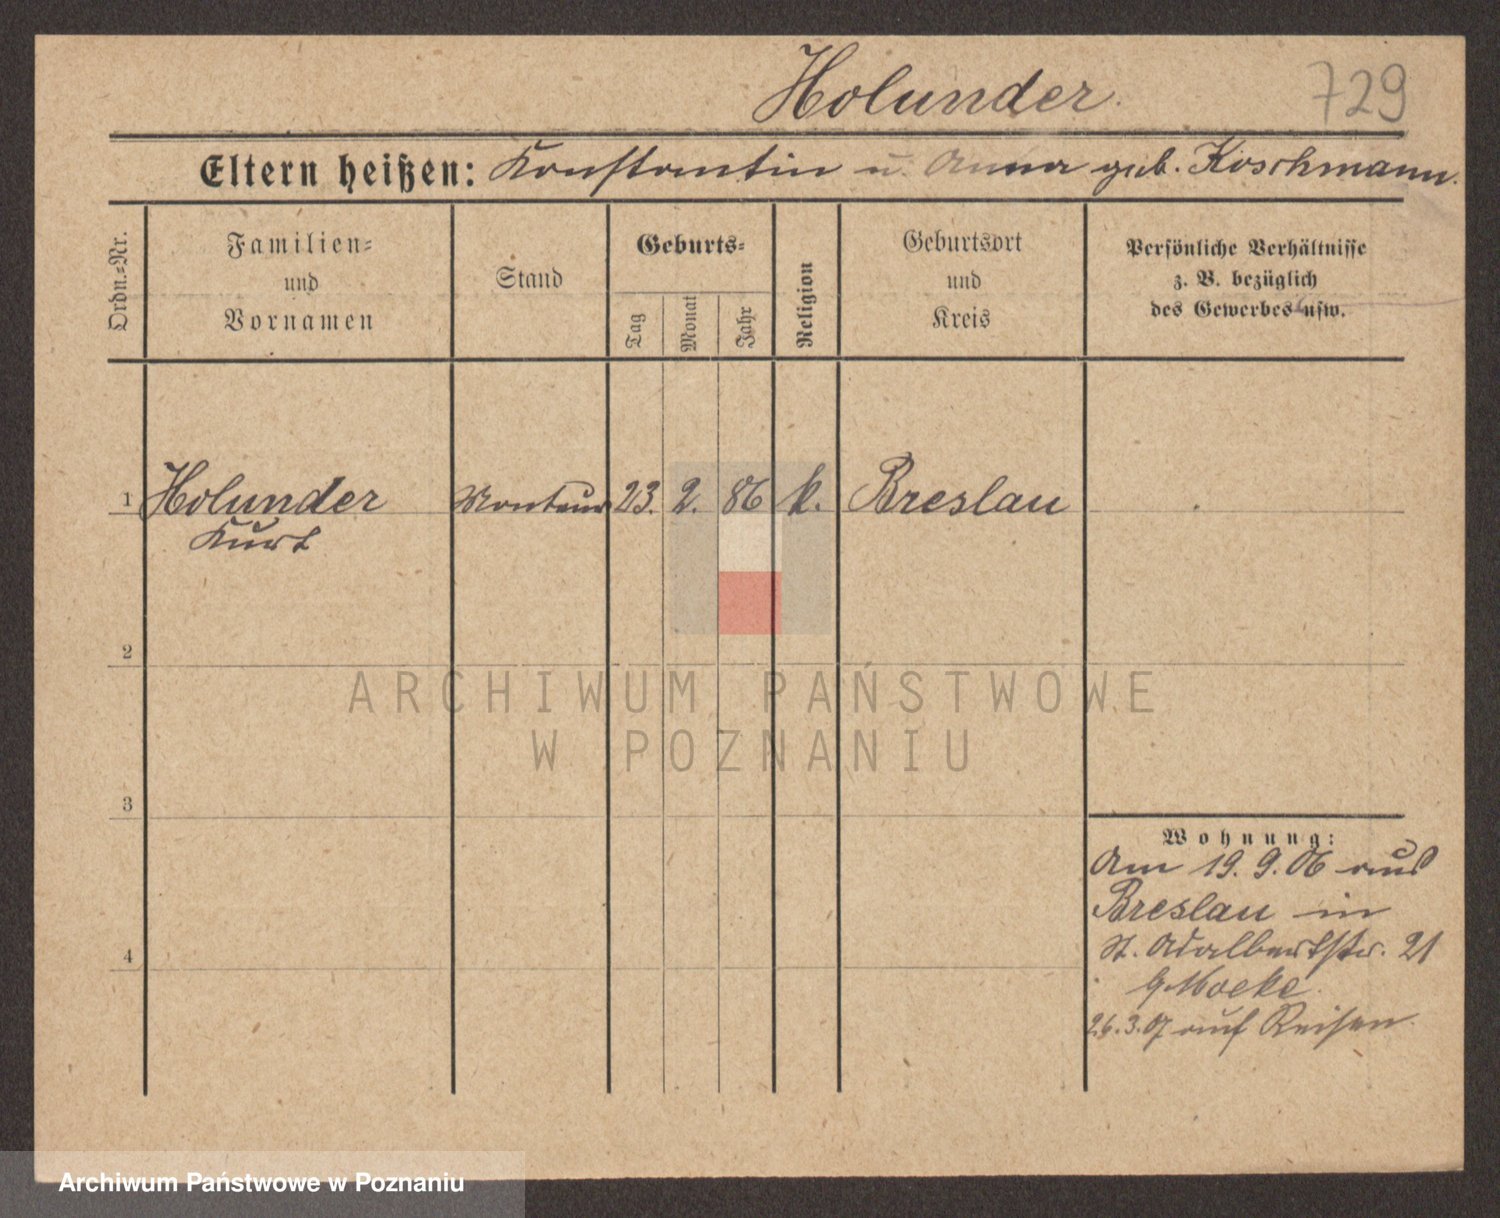 Holunder.
729
Eltern heißen: Konstantin u. Anna geb. Koschmann.
Ordn.=Nr.
Familien=
und
Vornamen
Stand
Geburts=
Tag
Monat
Jahr
Religion
Geburtsort
und
Kreis
Persönliche Verhältnisse
z. B. bezüglich
des Gewerbes usw.
1 Holunder Monteur 23. 2. 86 k. Breslau
Kurt
2
ARCHIWUM PAŃSTWOWE
W POZNANIU
3
Wohnung:
Am 19. 9. 06 aus
Breslau in
St. Adalbertstr. 21
4
26.3.07 auf Reisen.
Archiwum Państwowe w Poznaniu